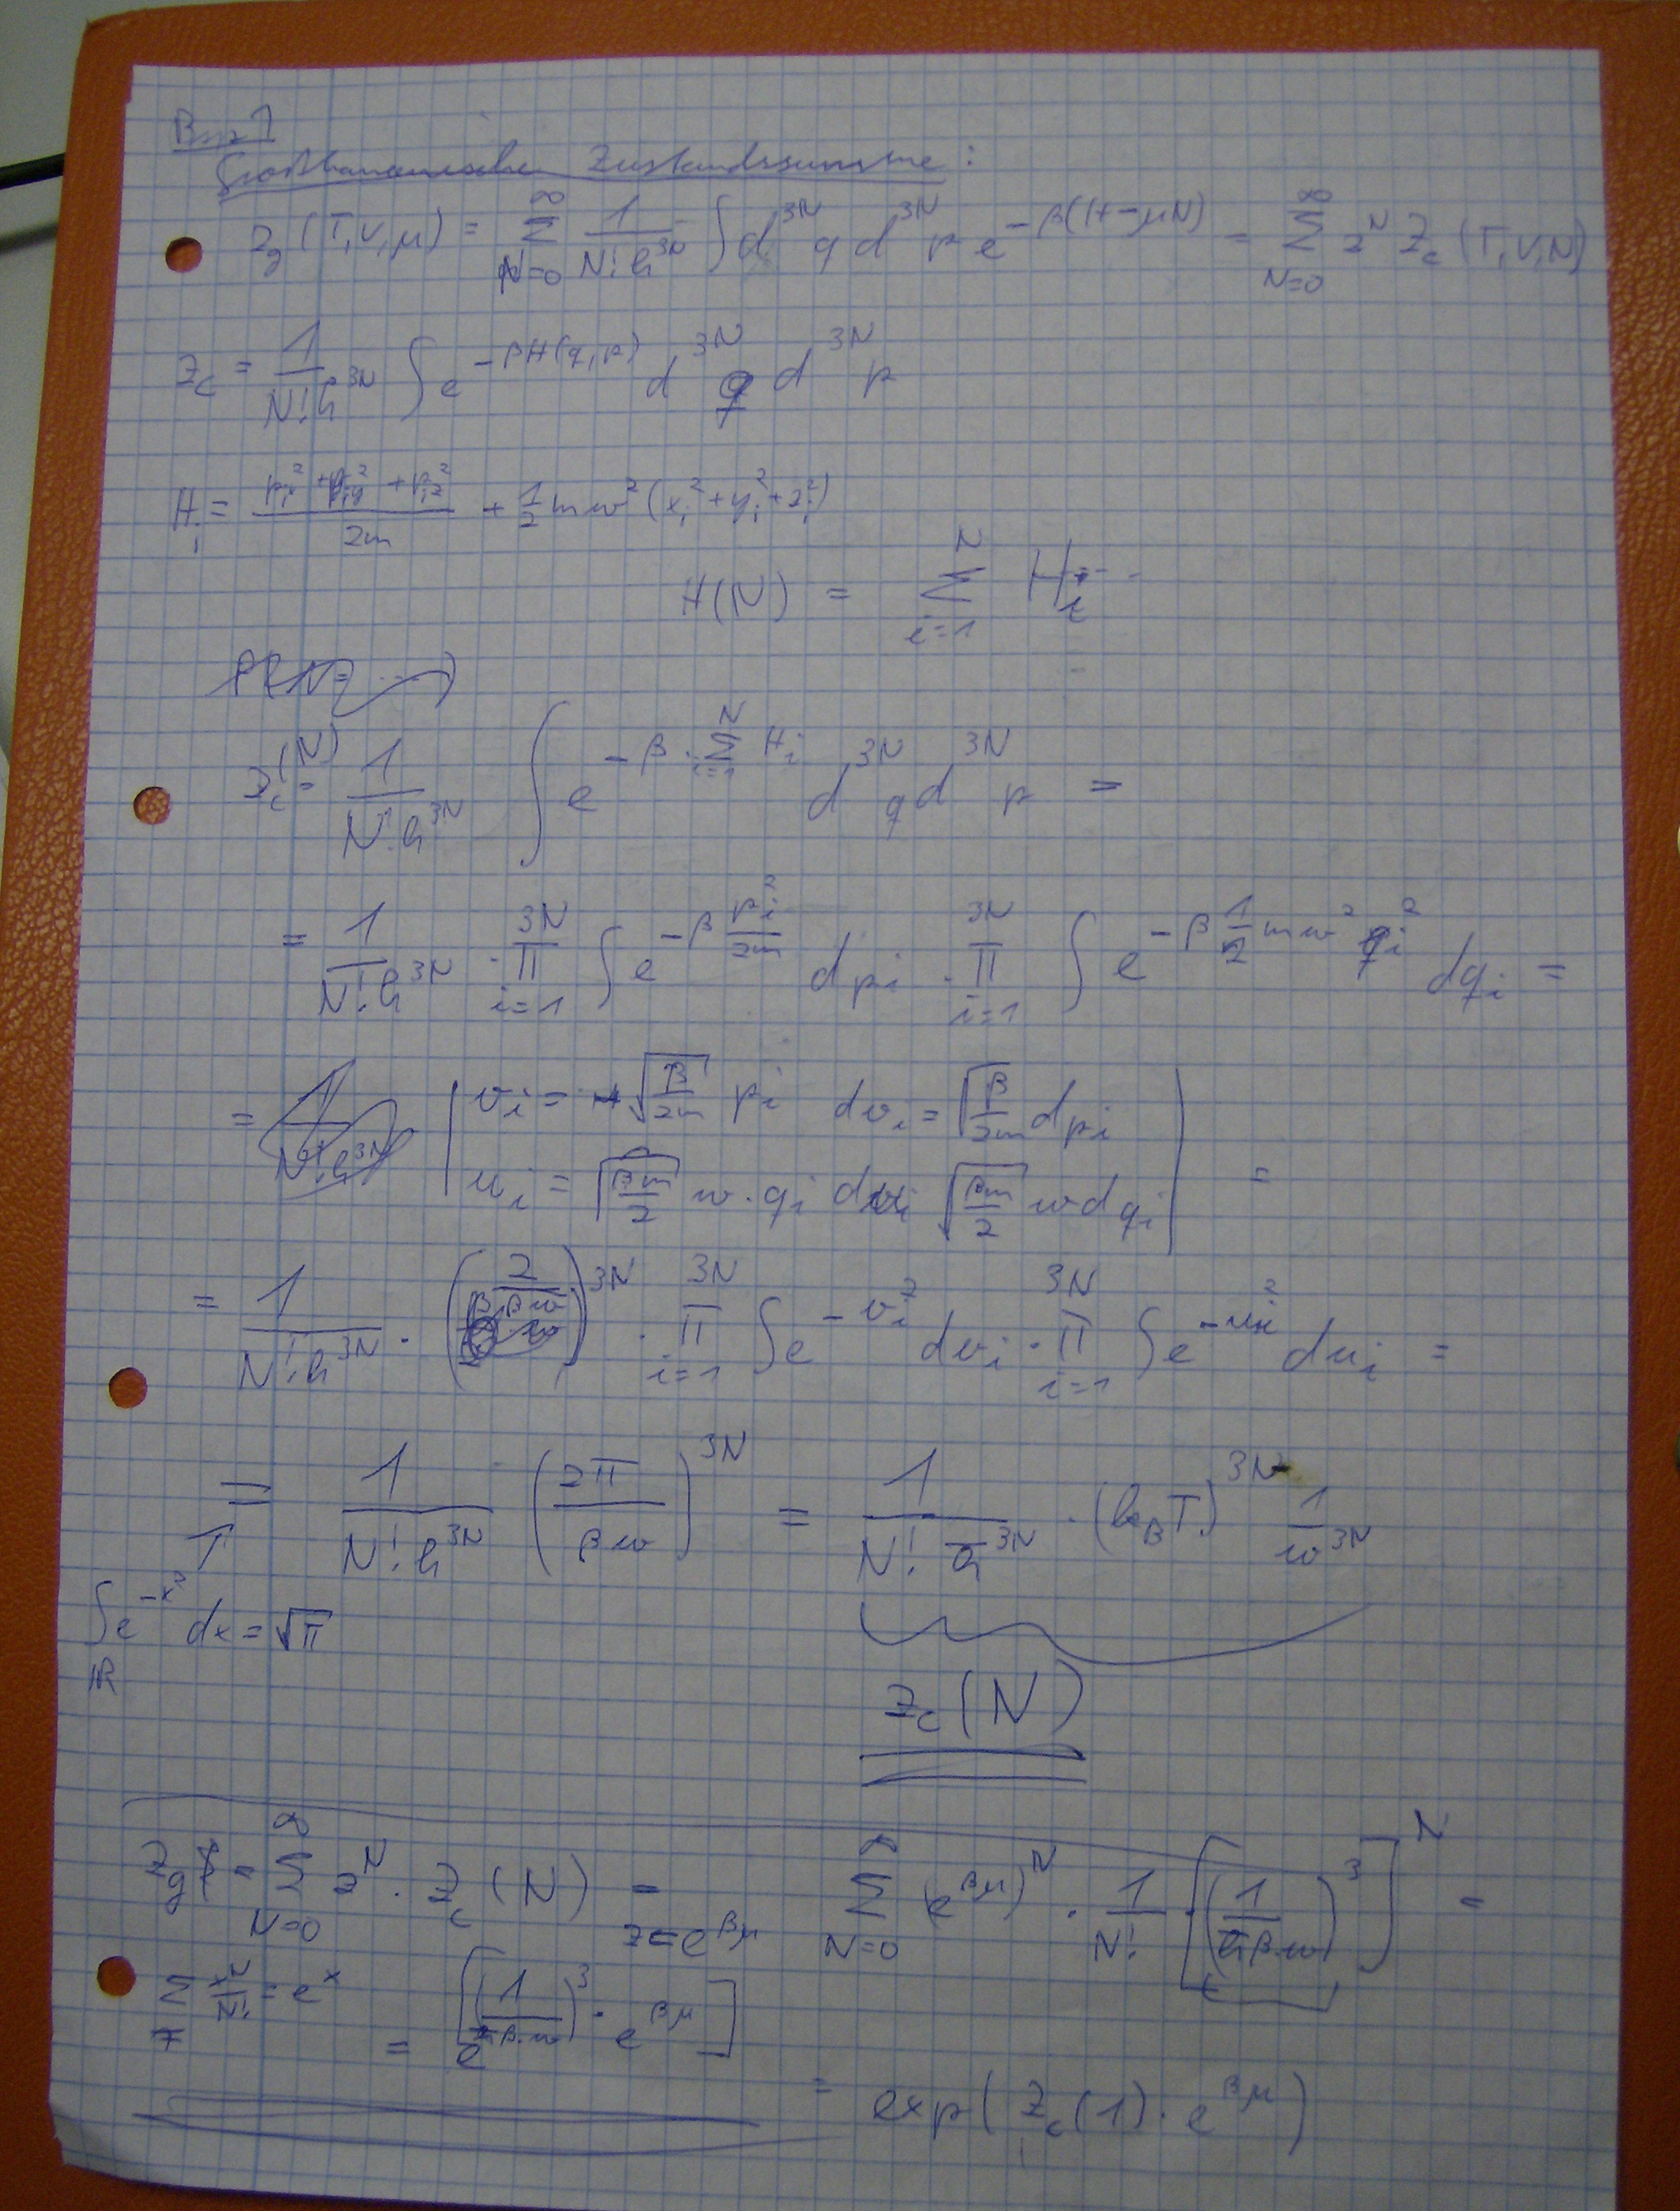 Bsp 1
Großkanonischen Zustandssumme:
Z_g (T,V,μ) = ∑_{N=0}^{∞} 1/(N! h^{3N}) ∫ d^{3N}q d^{3N}p e^{-β(H-μN)} = ∑_{N=0}^{∞} z^N Z_c (T,V,N)
Z_c = 1/(N! h^{3N}) ∫ e^{-βH(q,p)} d^{3N}q d^{3N}p
H_i = (p_{ix}^2 + p_{iy}^2 + p_{iz}^2)/2m + 1/2 mω^2 (x_i^2 + y_i^2 + z_i^2)
H(N) = ∑_{i=1}^{N} H_i
Z_c(N) = 1/(N! h^{3N}) ∫ e^{-β · ∑_{i=1}^{N} H_i} d^{3N}q d^{3N}p =
= 1/(N! h^{3N}) · ∏_{i=1}^{3N} ∫ e^{-β p_i^2/2m} dp_i · ∏_{i=1}^{3N} ∫ e^{-β 1/2 mω^2 q_i^2} dq_i =
= | v_i = √(β/2m) p_i dv_i = √(β/2m) dp_i
u_i = √(βm/2) ω · q_i du_i √(βm/2) ω dq_i | =
= 1/(N! h^{3N}) · (2/(βω))^{3N} · ∏_{i=1}^{3N} ∫ e^{-v_i^2} dv_i · ∏_{i=1}^{3N} ∫ e^{-u_i^2} du_i =
= 1/(N! h^{3N}) (2π/(βω))^{3N} = 1/(N! ħ^{3N}) · (k_B T)^{3N} 1/ω^{3N}
↑
∫_ℝ e^{-x^2} dx = √π
Z_c (N)
Z_g = ∑_{N=0}^{∞} z^N · Z_c (N) = z=e^{βμ} ∑_{N=0}^{∞} (e^{βμ})^N · 1/N! · [(1/(ħβ·ω))^3]^N =
∑ x^N/N! = e^x
= e^{[(1/(ħβ·ω))^3 · e^{βμ}]}
= exp( Z_c (1) · e^{βμ} )